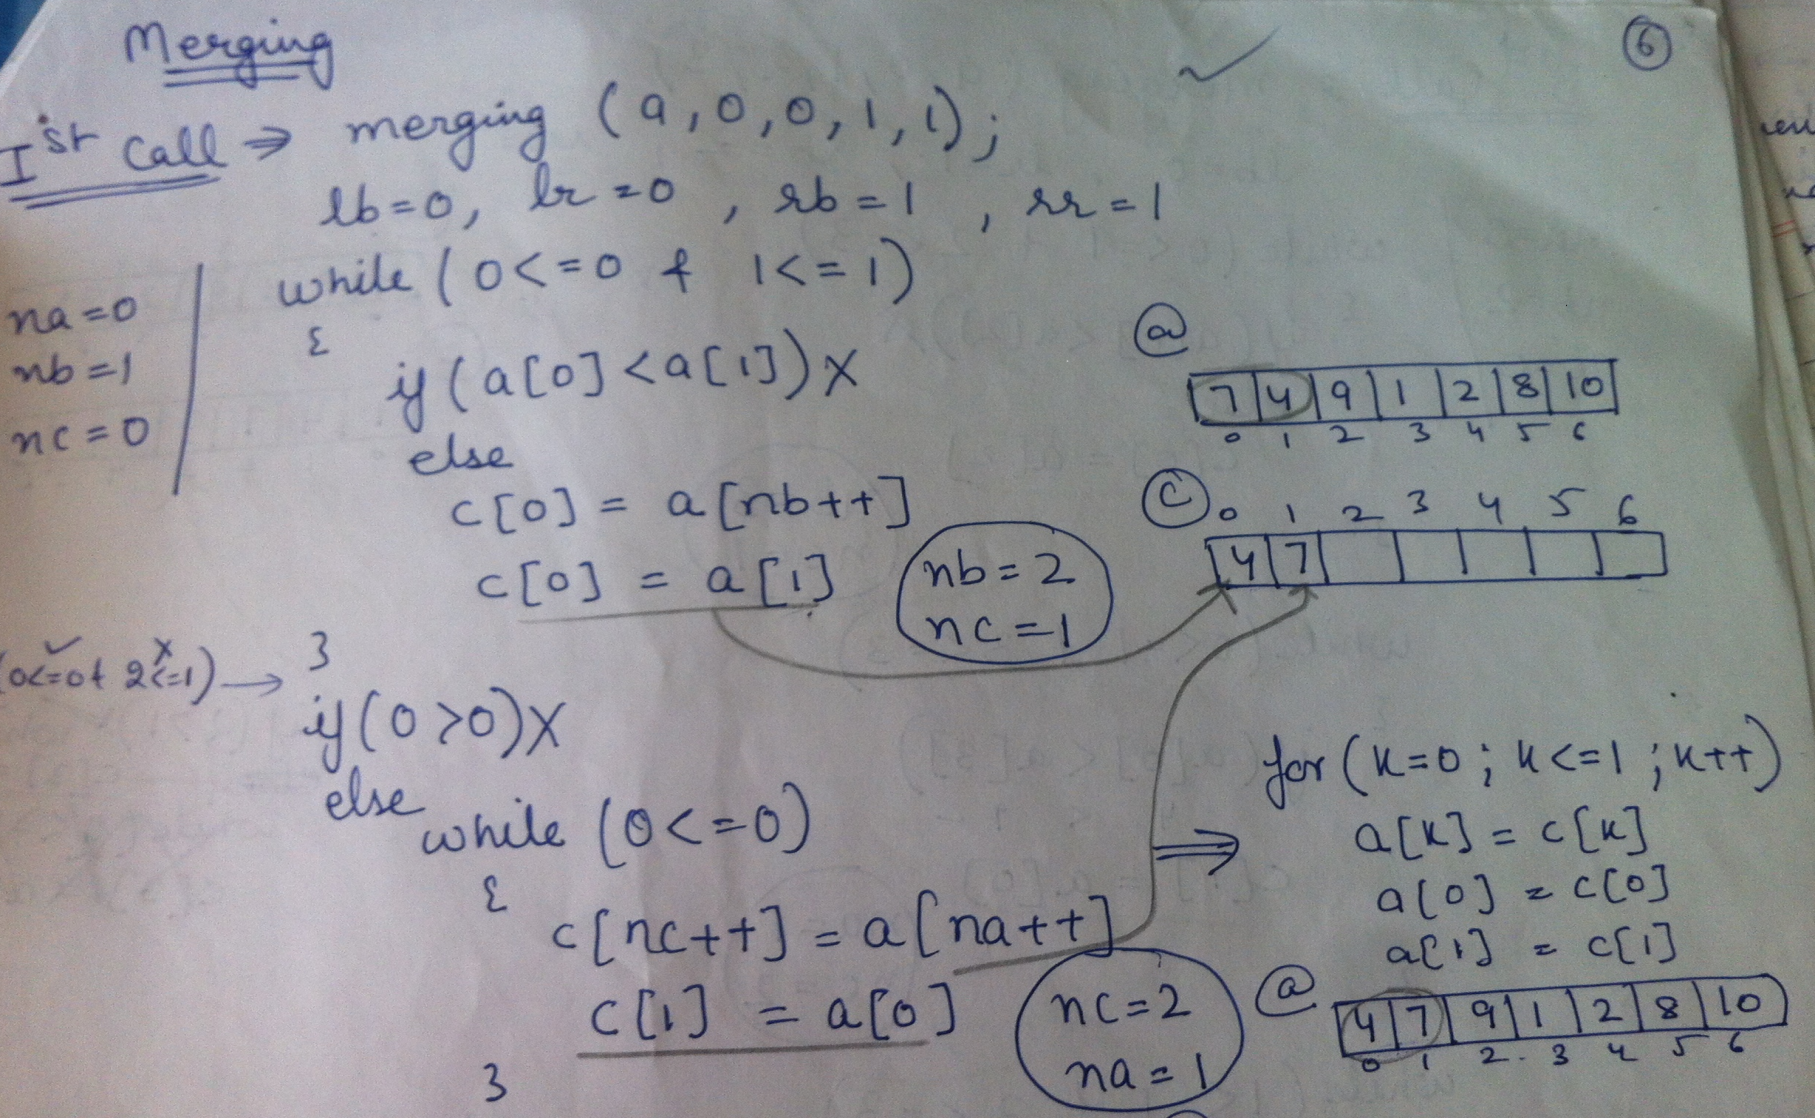 Merging
6
Ist Call ⇒ merging (a,0,0,1,1);
lb=0, lr=0, rb=1, rr=1
na=0
nb=1
nc=0
while (0<=0 & 1<=1)
{
if(a[0]<a[1])X
else
c[0] = a[nb++]
c[0] = a[1]
nb=2
nc=1
a
7 4 9 1 2 8 10
0 1 2 3 4 5 6
c 0 1 2 3 4 5 6
4 7
(0<=0& 2<=1) → }
if(0>0)X
else while (0<=0)
{
c[nc++] = a[na++]
c[1] = a[0]
}
nc=2
na=1
⇒ for(k=0; k<=1; k++)
a[k] = c[k]
a[0] = c[0]
a[1] = c[1]
a
4 7 9 1 2 8 10
0 1 2 3 4 5 6